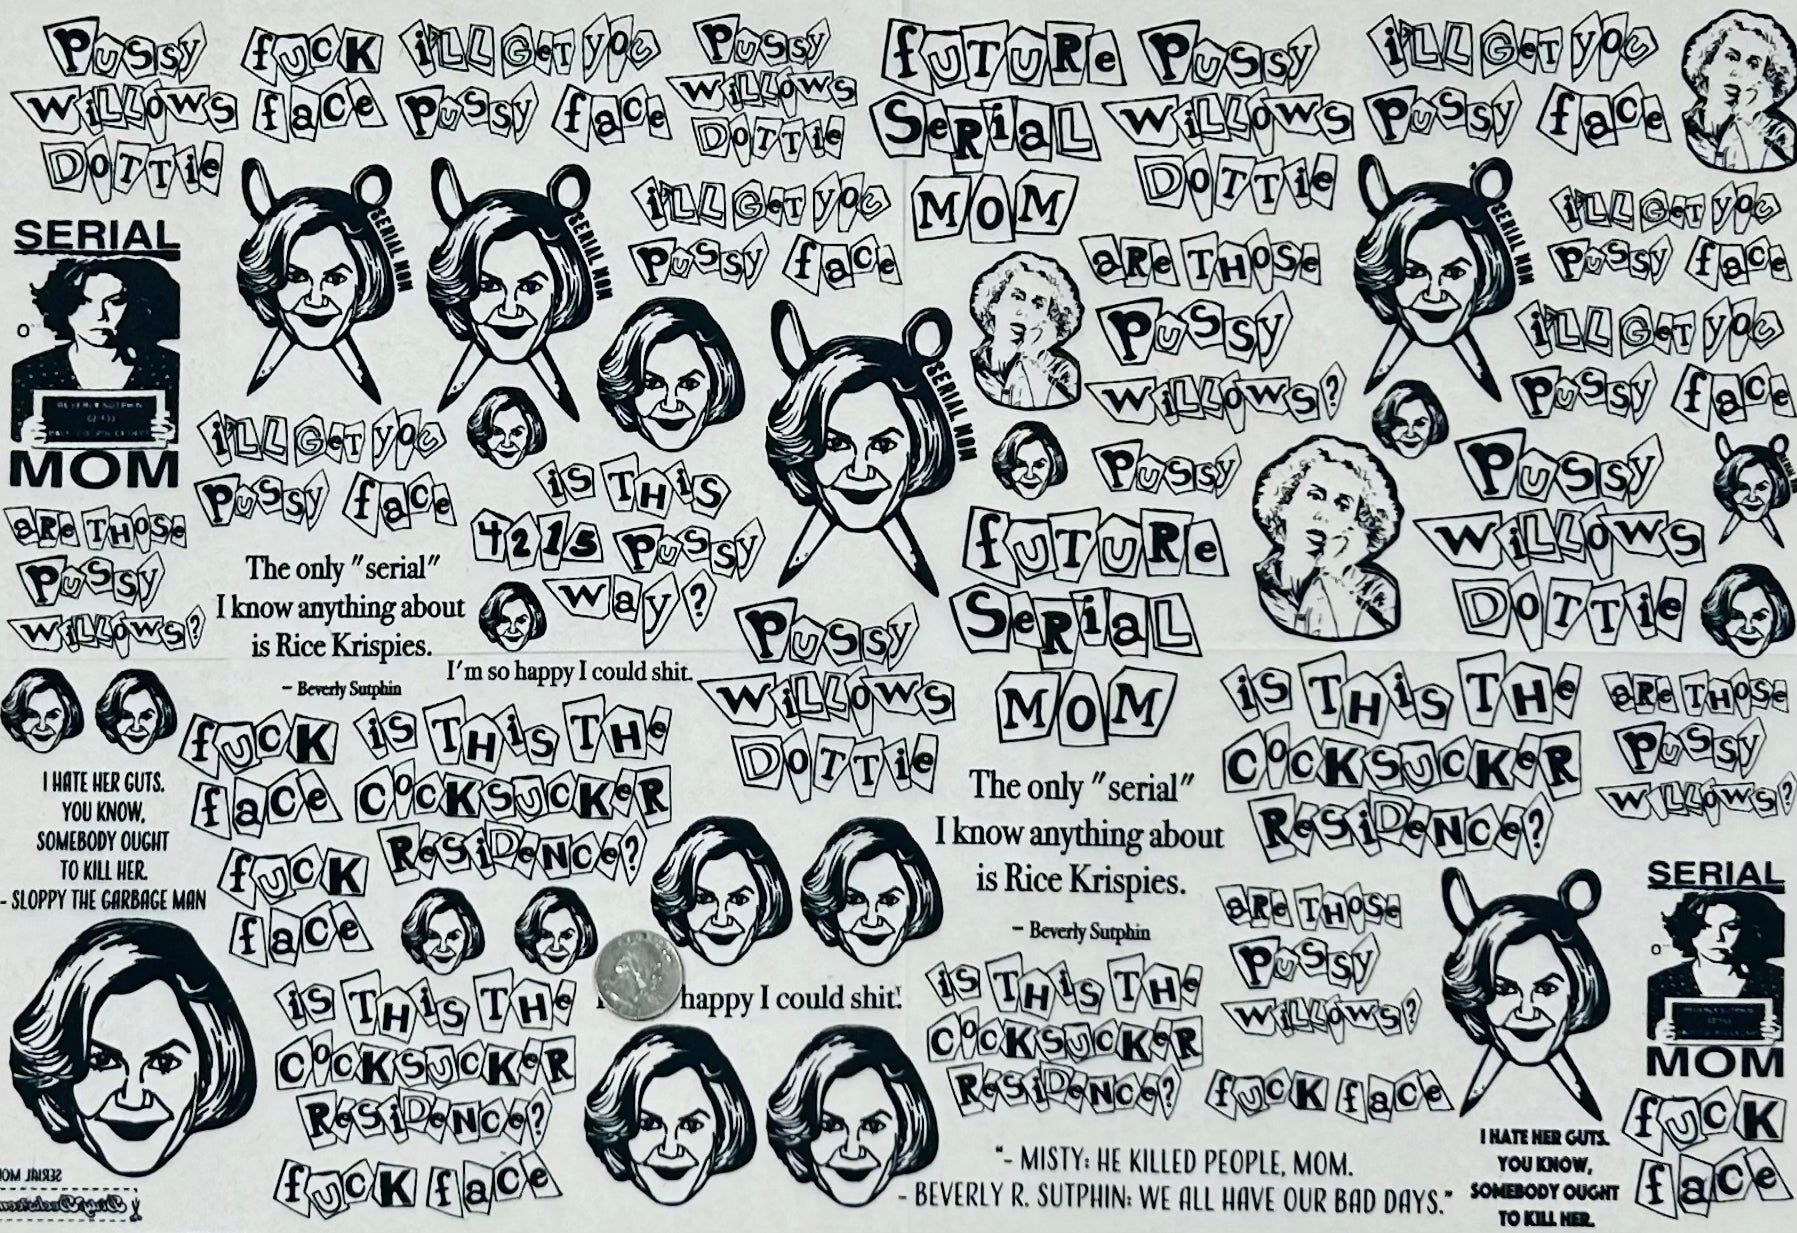 PuSSy
WiLLOWS
DOTTie
fUCK
face
i'LL GeT yOU
PuSSy face
PuSSy
WiLLOWS
DOTTie
fUTURe
SeRiaL
MOM
PuSSy
WiLLOWS
DOTTie
i'LL GeT yOU
PuSSy face
SERIAL
MOM
SERIAL MOM
SERIAL MOM
i'LL GeT yOU
PuSSy face
aRe THOSe
PuSSy
WiLLOWS?
SERIAL MOM
i'LL GeT yOU
PuSSy face
i'LL GeT yOU
PuSSy face
i'LL GeT yOU
PuSSy face
SERIAL MOM
PuSSy
PuSSy
WiLLOWS
DOTTie
aRe THOSe
PuSSy
WiLLOWS?
The only "serial"
I know anything about
is Rice Krispies.
- Beverly Sutphin
iS THiS
4215 PuSSy
Way?
I'm so happy I could shit.
PuSSy
WiLLOWS
DOTTie
fUTURe
SeRiaL
MOM
iS THiS THe
COCKSUCKeR
ReSiDeNCe?
aRe THOSe
PuSSy
WiLLOWS?
I HATE HER GUTS.
YOU KNOW,
SOMEBODY OUGHT
TO KILL HER.
- SLOPPY THE GARBAGE MAN
fUCK
face
iS THiS THe
COCKSUCKeR
ReSiDeNCe?
fUCK
face
The only "serial"
I know anything about
is Rice Krispies.
- Beverly Sutphin
aRe THOSe
PuSSy
WiLLOWS?
SERIAL
MOM
iS THiS THe
COCKSUCKeR
ReSiDeNCe?
happy I could shit.
iS THiS THe
COCKSUCKeR
ReSiDeNCe?
fUCK face
fUCK face
fUCK
face
"- MISTY: HE KILLED PEOPLE, MOM.
- BEVERLY R. SUTPHIN: WE ALL HAVE OUR BAD DAYS."
I HATE HER GUTS.
YOU KNOW,
SOMEBODY OUGHT
TO KILL HER.